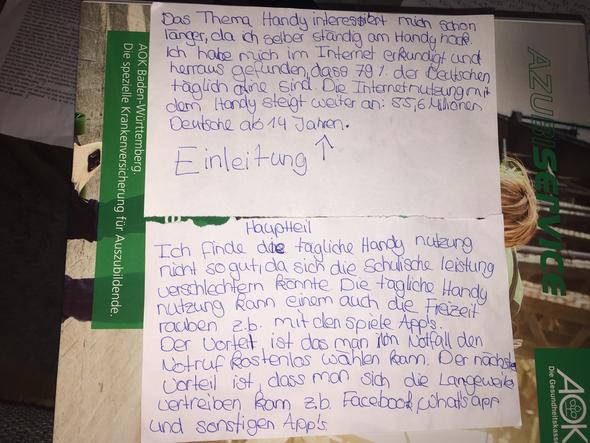 Das Thema Handy interessiert mich schon
länger, da ich selber ständig am Handy
Ich habe mich im Internet erkundigt und
herraus gefunden, dass 79% der Deutschen
täglich online sind. Die Internetnutzung mit
dem Handy steigt weiter an: 55,6 Millionen
Deutsche ab 14 Jahren.
Einleitung
Hauptteil
Ich finde die tägliche Handy nutzung
nicht so gut, da sich die Schulische leistung
verschlechtern könnte Die tägliche Handy
nutzung kann einem auch die Freizeit
rauben z.b. mit den spiele App's.
Der Vorteil, ist das man im Notfall den
Notruf kostenlos wählen kann. Der nächste
Vorteil ist, dass man sich die Langeweile
vertreiben kann z.b. Facebook, Whatsapp
und sonstigen App's
AOK Baden-Württemberg.
Die spezielle Krankenversicherung für Auszubildende.
AZUBISERVICE
AOK
Die Gesundheitskasse